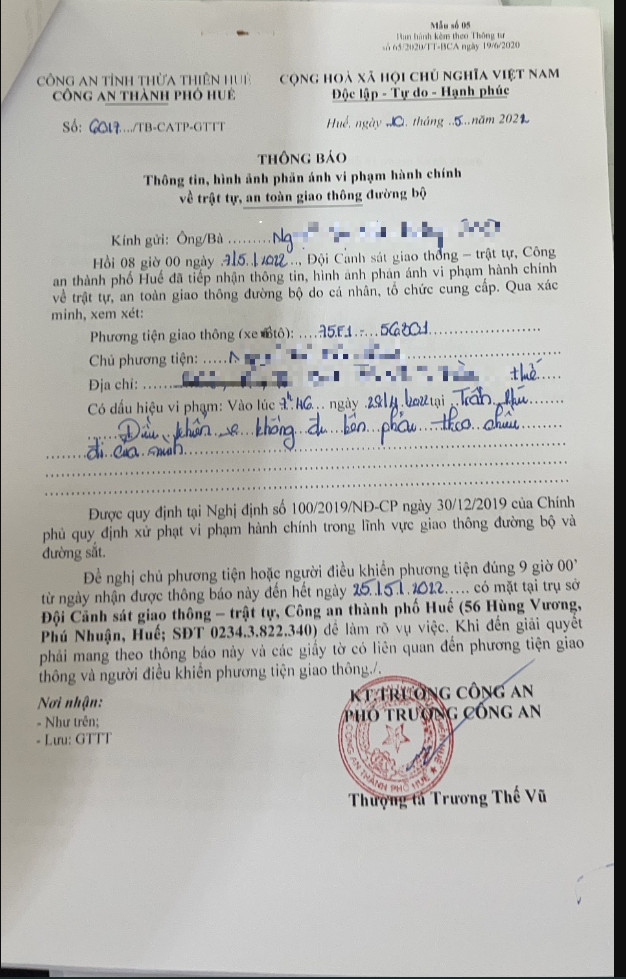 Mẫu số 05
Ban hành kèm theo Thông tư
số 65/2020/TT-BCA ngày 19/6/2020
CÔNG AN TỈNH THỪA THIÊN HUẾ
CÔNG AN THÀNH PHỐ HUẾ
CỘNG HOÀ XÃ HỘI CHỦ NGHĨA VIỆT NAM
Độc lập - Tự do - Hạnh phúc
Số: 6017.../TB-CATP-GTTT
Huế, ngày 10 tháng 5 năm 2022
THÔNG BÁO
Thông tin, hình ảnh phản ánh vi phạm hành chính
về trật tự, an toàn giao thông đường bộ
Kính gửi: Ông/Bà ........ Ng
Hồi 08 giờ 00 ngày 7/5/2022.., Đội Cảnh sát giao thông – trật tự, Công
an thành phố Huế đã tiếp nhận thông tin, hình ảnh phản ánh vi phạm hành chính
về trật tự, an toàn giao thông đường bộ do cá nhân, tổ chức cung cấp. Qua xác
minh, xem xét:
Phương tiện giao thông (xe tô): ....75F1 - 56801
Chủ phương tiện: ..... N
Địa chỉ: ........ thế
Có dấu hiệu vi phạm: Vào lúc 7h46... ngày 28/4/2022 tại Trần
Điều khiển xe không đi bên phải theo chiều
đi của mình
Được quy định tại Nghị định số 100/2019/NĐ-CP ngày 30/12/2019 của Chính
phủ quy định xử phạt vi phạm hành chính trong lĩnh vực giao thông đường bộ và
đường sắt.
Đề nghị chủ phương tiện hoặc người điều khiển phương tiện đúng 9 giờ 00’
từ ngày nhận được thông báo này đến hết ngày 25/5/2022..... có mặt tại trụ sở
Đội Cảnh sát giao thông – trật tự, Công an thành phố Huế (56 Hùng Vương,
Phú Nhuận, Huế; SĐT 0234.3.822.340) để làm rõ vụ việc. Khi đến giải quyết
phải mang theo thông báo này và các giấy tờ có liên quan đến phương tiện giao
thông và người điều khiển phương tiện giao thông./.
Nơi nhận:
- Như trên;
- Lưu: GTTT
KT.TRƯỞNG CÔNG AN
PHÓ TRƯỞNG CÔNG AN
CÔNG AN THÀNH PHỐ HUẾ
Thượng tá Trương Thế Vũ